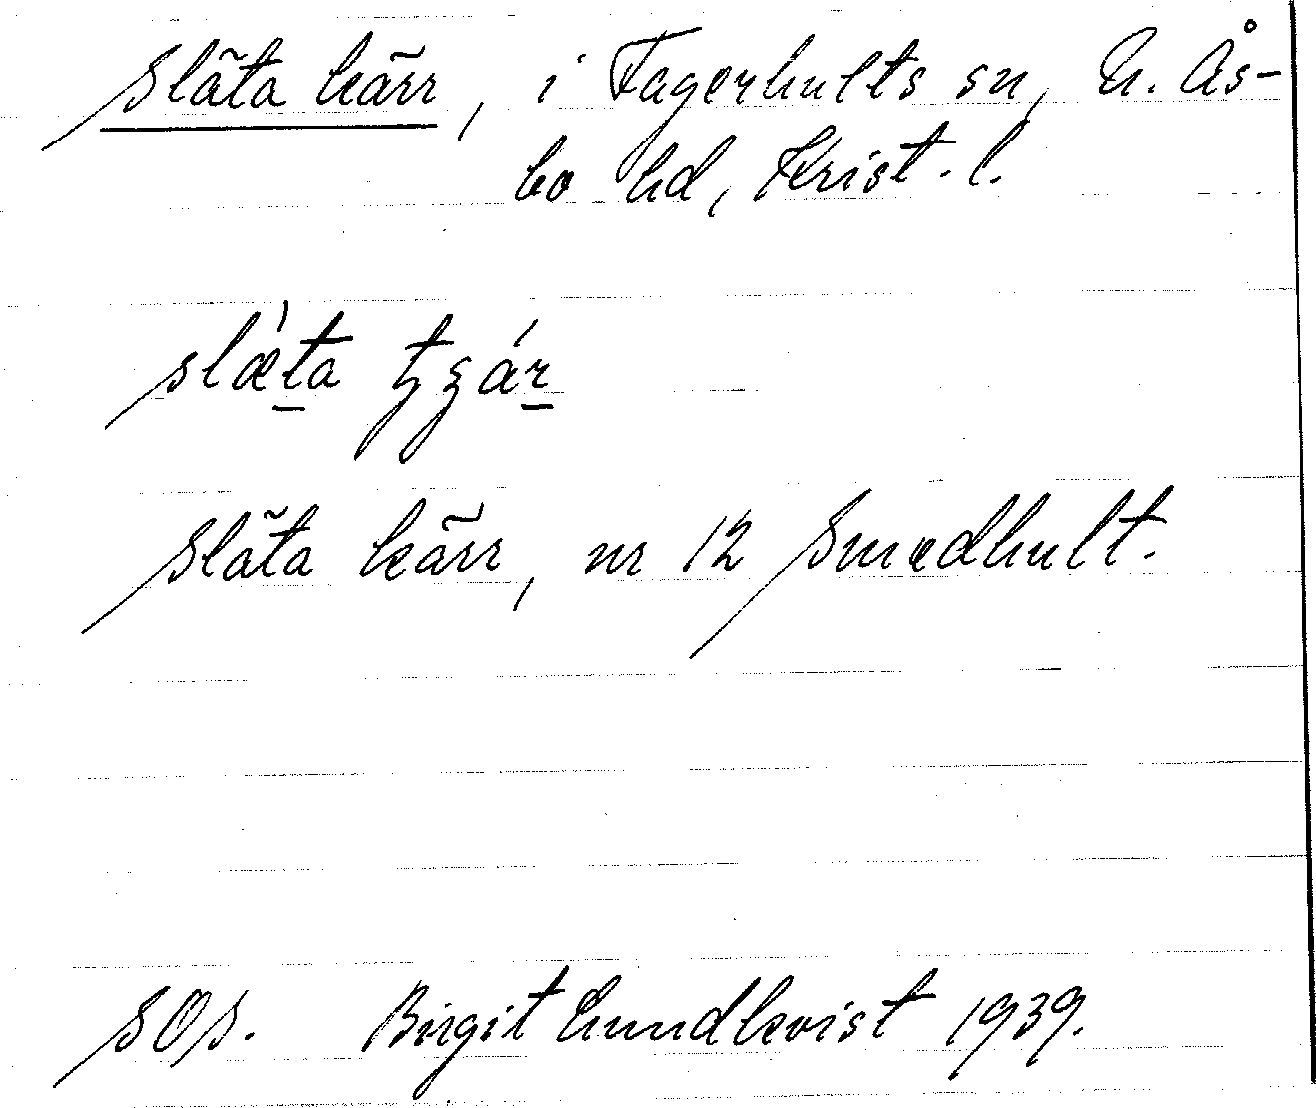 Släta kärr, i Fagerhults sn, N. Ås-
bo hd, Krist. l.
slæ̀ta
Släta kärr, nr 12 Smedhult.
SOS. Birgit Lundkvist 1939.